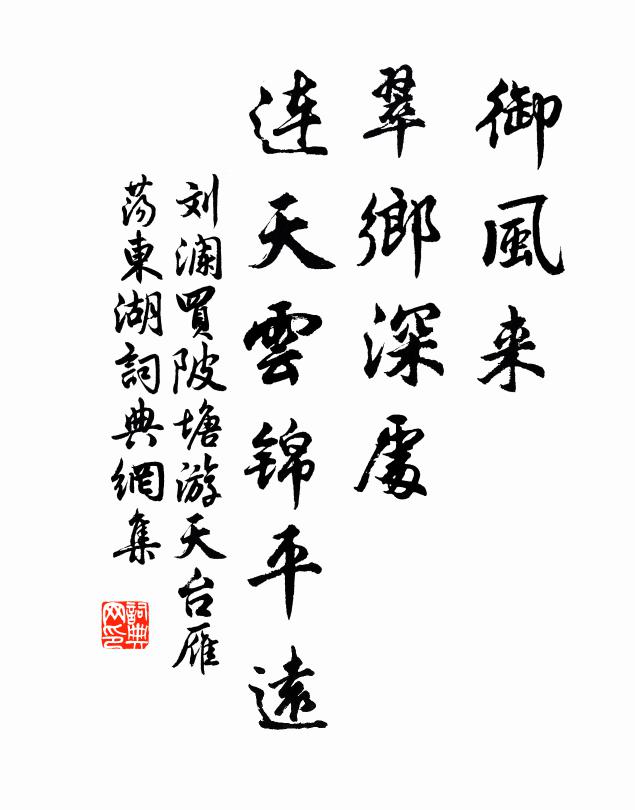 御風来
翠鄉深處
连天雲錦平遠
刘瀾買陂塘游天台雁
蕩東湖詞典網集
詞典网印